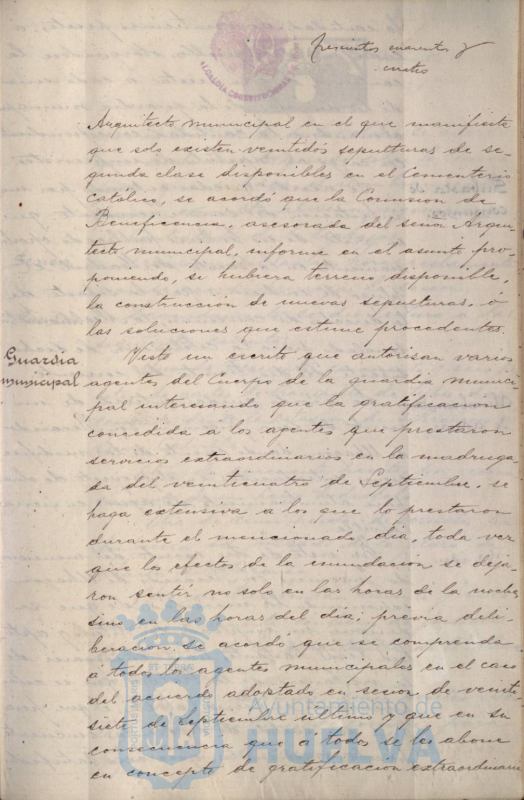 trescientos cuarenta y
cuatro
ALCALDIA CONSTITUCIONAL
Arquitecto municipal en el que manifiesta
que solo existen veintidos sepulturas de se-
gunda clase disponibles en el Cementerio
Católico, se acordó que la Comision de
Beneficencia, asesorada del señor Arqui-
tecto municipal, informe en el asunto pro-
poniendo, si hubiera terreno disponible,
la construcción de nuevas sepulturas, ó
las soluciones que estime procedentes.
Guardia
municipal
Visto un escrito que autorisan varios
agentes del Cuerpo de la guardia munici-
pal interesando que la gratificación
concedida á los agentes que prestaron
servicios extraordinarios en la madruga-
da del veinticuatro de Septiembre, se
haga extensiva á los que lo prestaron
durante el mencionado dia, toda vez
que los efectos de la inundacion se deja-
ron sentir no solo en las horas de la noche
sino en las horas del dia; previa deli-
beracion se acordó que se comprenda
á todos los agentes municipales en el caso
del acuerdo adoptado en sesion de veinti-
siete de Septiembre último y que en su
consecuencia que á todos se les abone
en concepto de gratificacion extraordinaria
Ayuntamiento de
HUELVA